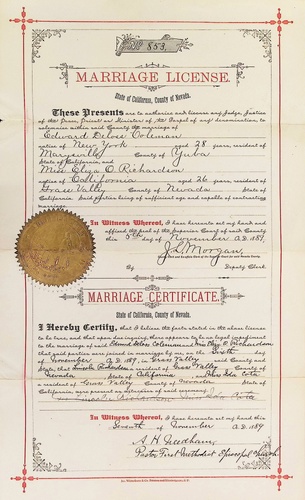 No 853.
MARRIAGE LICENSE.
State of California, County of Nevada.
These Presents are to authorize and license any Judge, Justice
of the Peace, Priest or Minister of the Gospel of any denomination, to
solemnize within said County the marriage of
Edward Deloss Coleman
native of New York aged 28 years,
Marysville County of Yuba
State of California, and
Miss Eliza O. Richardson
native of California aged 26 years,
Grass Valley County of Nevada
State of California. Said parties being of sufficient age and capable of contracting
marriage.
In Witness Whereof, I have hereunto set my hand and
affixed the seal of the Superior Court of said County
this 5th day of November A.D. 1889.
J. L. Morgan,
By Deputy Clerk
MARRIAGE CERTIFICATE.
State of California, County of Nevada.
I Hereby Certify, that I believe the facts stated in the above license
to be true, and that upon due inquiry, there appears to be no legal impediment
to the marriage of said
that said parties were joined in marriage by me, on the Sixth day
of November A.D. 1889, in Grass Valley said County and
State, that Lincoln Richardson a resident of Grass Valley County of
Nevada State of California and
a resident of Grass Valley County of Nevada
State of California, were present as witnesses of said ceremony.
In Witness Whereof, I have hereunto set my hand this
Seventh of November A.D. 1889
A. H. Needham,
Pastor First Methodist Episcopal Church